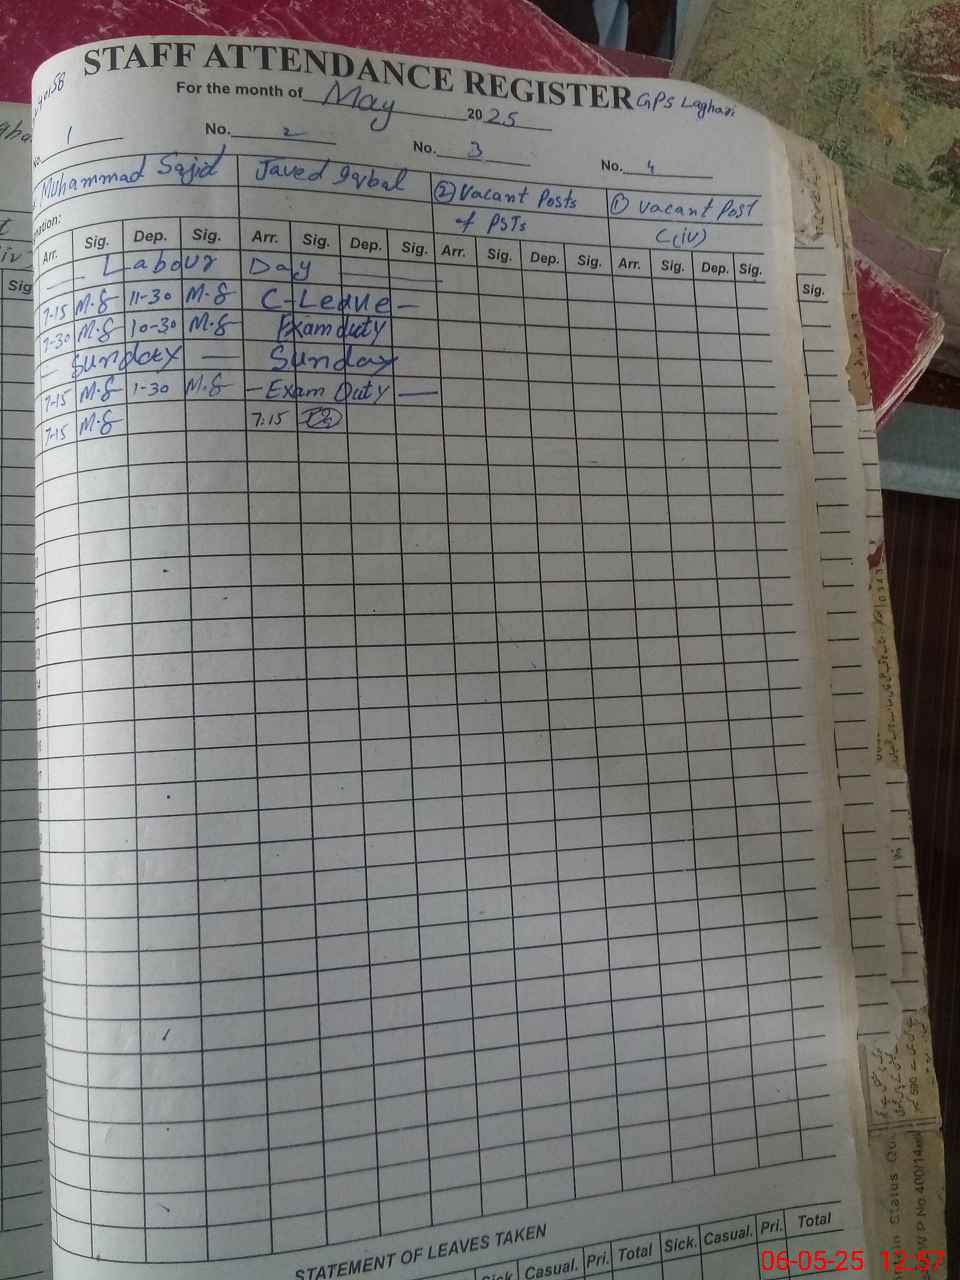 STAFF ATTENDANCE REGISTER GPS Laghari
For the month of May 2025
No. 1 No. 2 No. 3 No. 4
Muhammad Sajid Javed Iqbal (2) Vacant Posts (1) Vacant Post
of PSTs C(iv)
Arr. Sig. Dep. Sig. Arr. Sig. Dep. Sig. Arr. Sig. Dep. Sig. Arr. Sig. Dep. Sig.
Sig.
Labour Day
7-15 M.S 11-30 M.S C-Leave
7-30 M.S 10-30 M.S Exam duty
Sunday Sunday
7-15 M.S 1-30 M.S Exam Duty
7-15 M.S 7:15
STATEMENT OF LEAVES TAKEN
Casual. Pri. Total Sick. Casual. Pri. Total
06-05-25 12:57